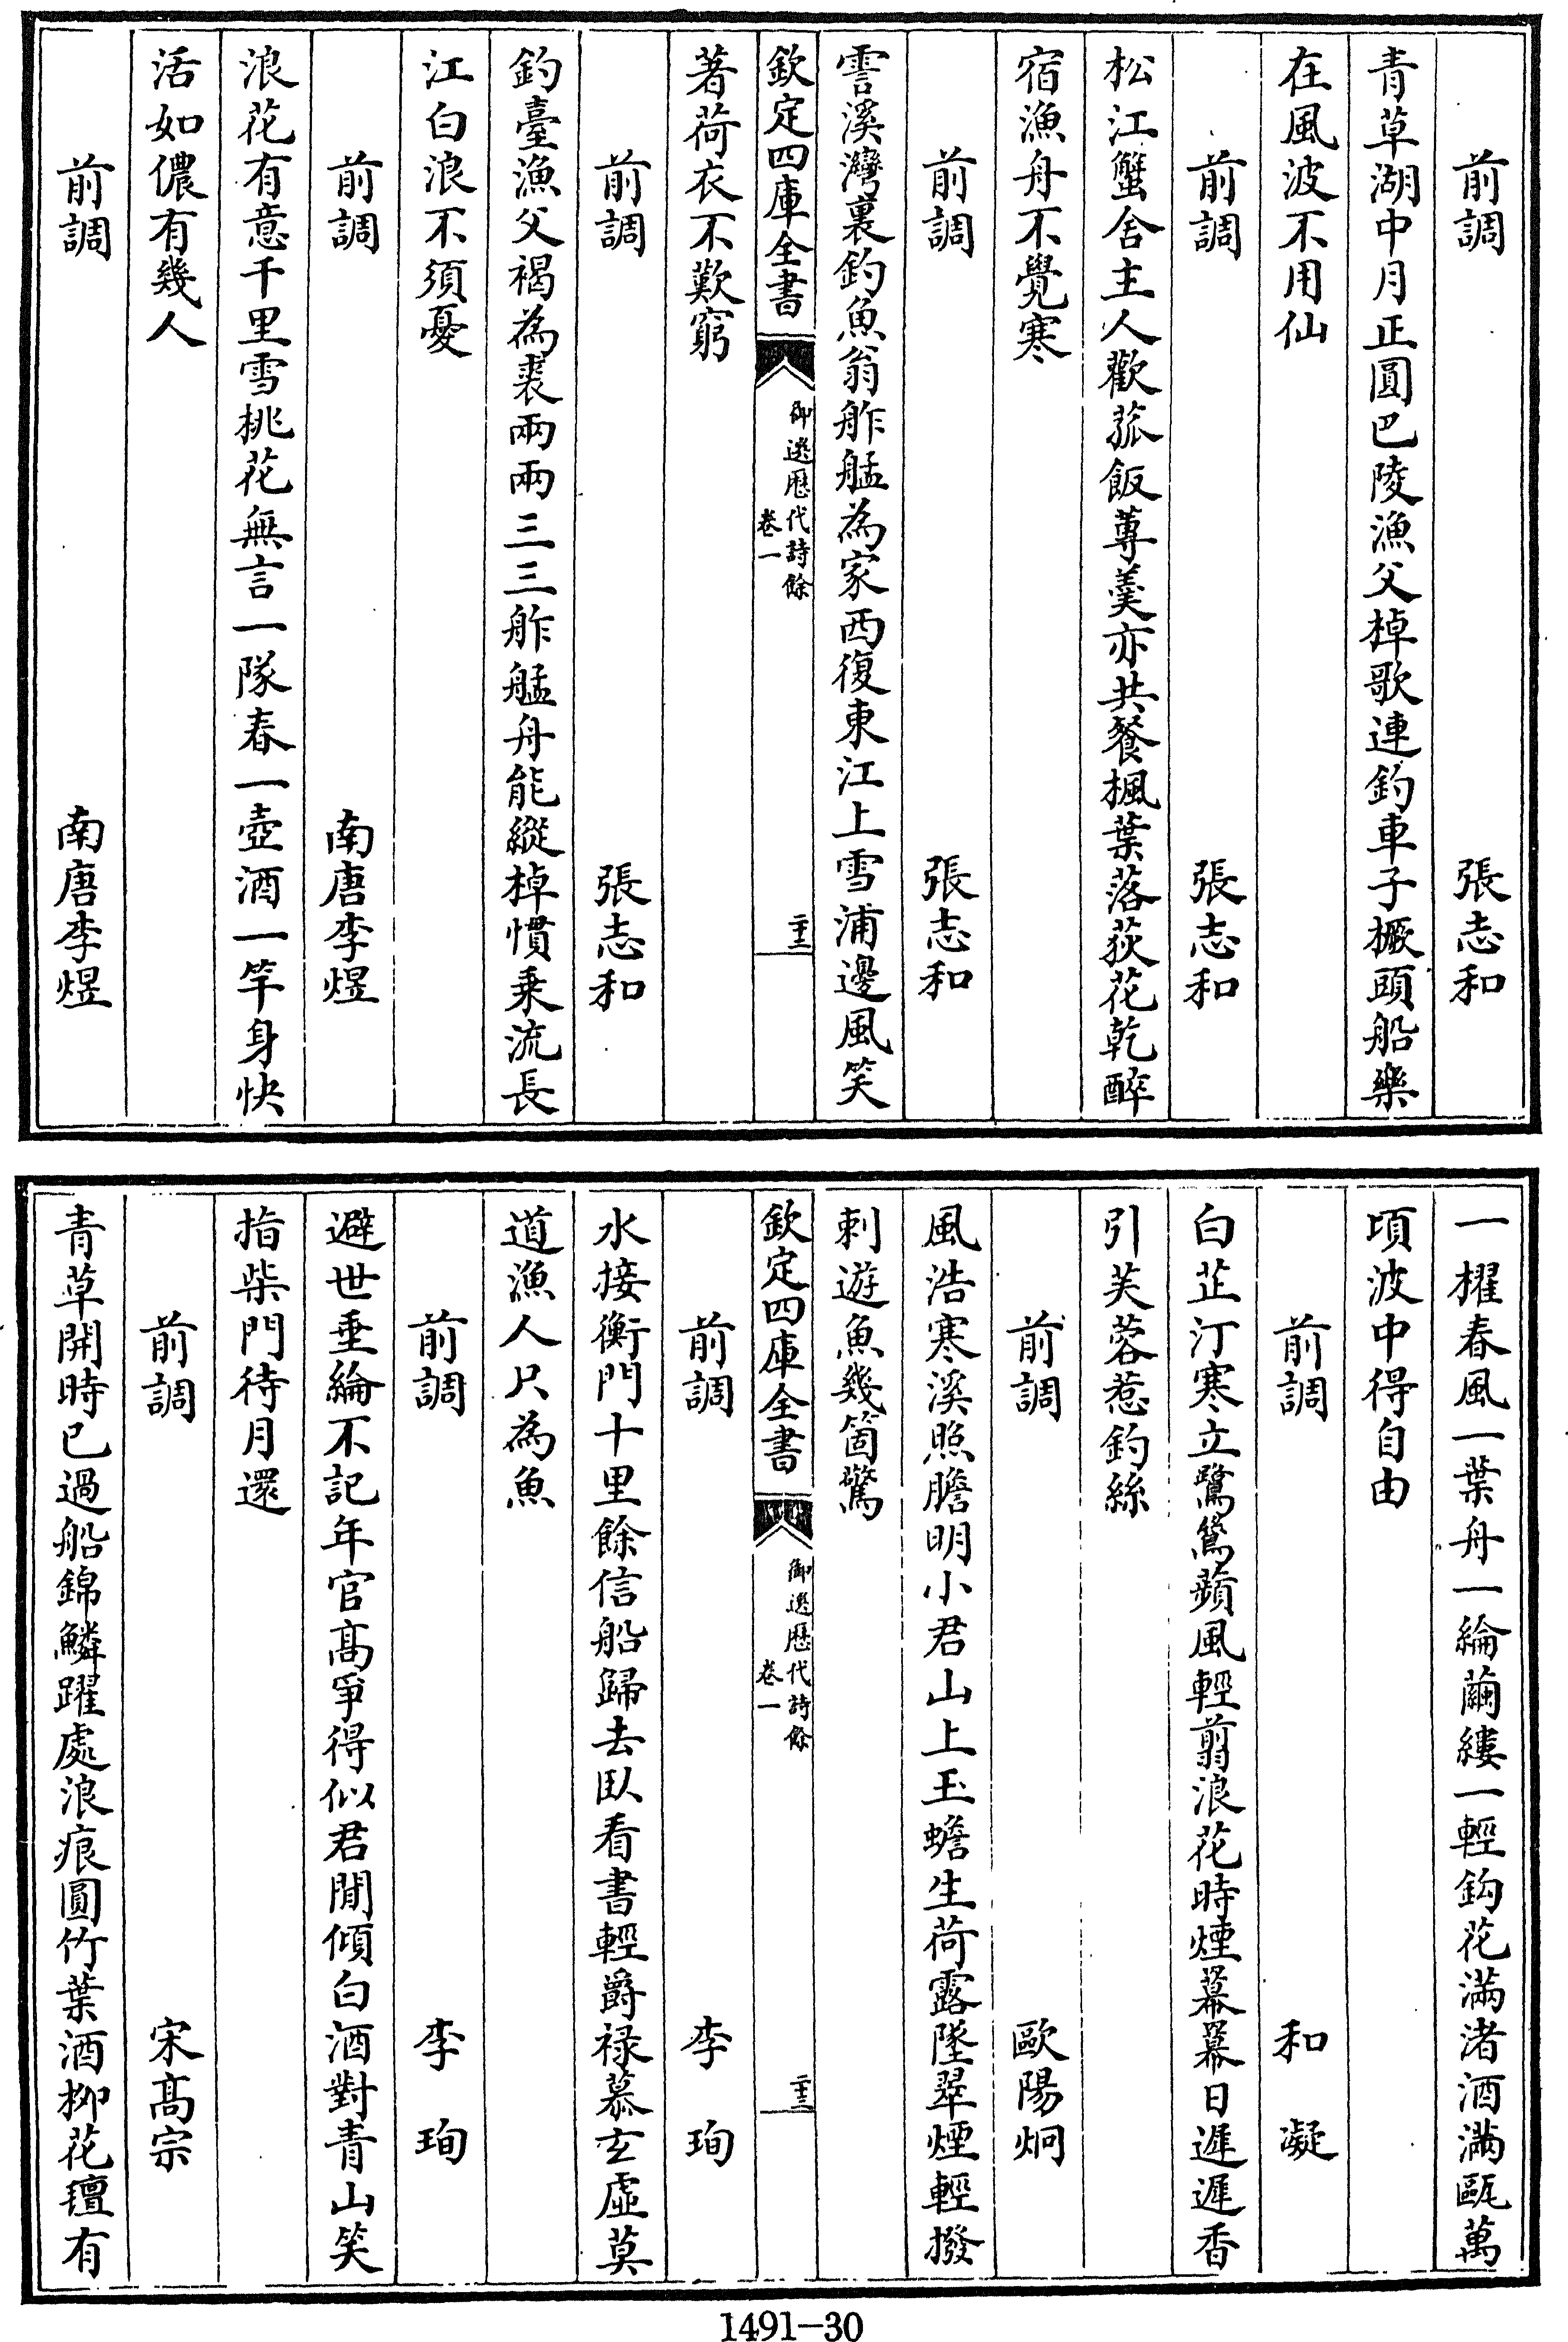 前調 張志和
青草湖中月正圓巴陵漁父棹歌連釣車子橛頭船樂
在風波不用仙
前調 張志和
松江蟹舍主人歡菰飯蓴羹亦共餐楓葉落荻花乾醉
宿漁舟不覺寒
前調 張志和
霅溪灣裏釣魚翁舴艋為家西復東江上雪浦邊風笑
欽定四庫全書 御選歷代詩餘 卷一
著荷衣不歎窮
前調 張志和
釣臺漁父褐為裘兩兩三三舴艋舟能縱棹慣乗流長
江白浪不須憂
前調 南唐李煜
浪花有意千里雪桃花無言一隊春一壺酒一竿身快
活如儂有幾人
前調 南唐李煜
一櫂春風一葉舟一綸繭縷一輕鈎花滿渚酒滿甌萬
頃波中得自由
前調 和凝
白芷汀寒立鷺鷥蘋風輕翦浪花時煙冪冪日遲遲香
引芙蓉惹釣絲
前調 歐陽炯
風浩寒溪照膽明小君山上玉蟾生荷露墜翠煙輕撥
刺遊魚幾箇驚
欽定四庫全書 御選歷代詩餘 卷一
前調 李珣
水接衡門十里餘信船歸去臥看書輕爵禄慕玄虛莫
道漁人只為魚
前調 李珣
避世垂綸不記年官高爭得似君閒傾白酒對青山笑
指柴門待月還
前調 宋高宗
青草開時已過船錦鱗躍處浪痕圓竹葉酒柳花氊有
1491-30